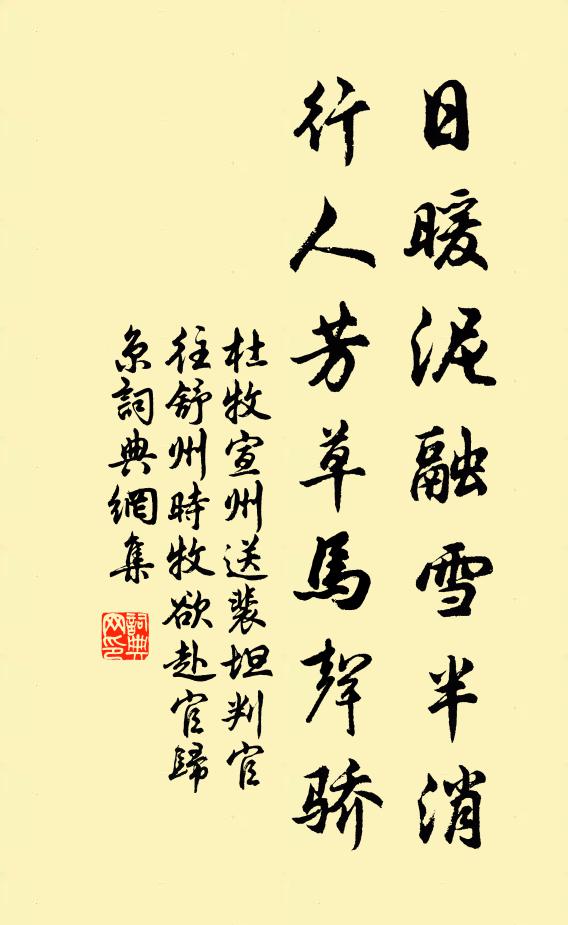 日暖泥融雪半消
行人芳草馬聲骄
杜牧宣州送裴坦判官
往舒州時牧欲赴官歸
京詞典網集
詞典
网印